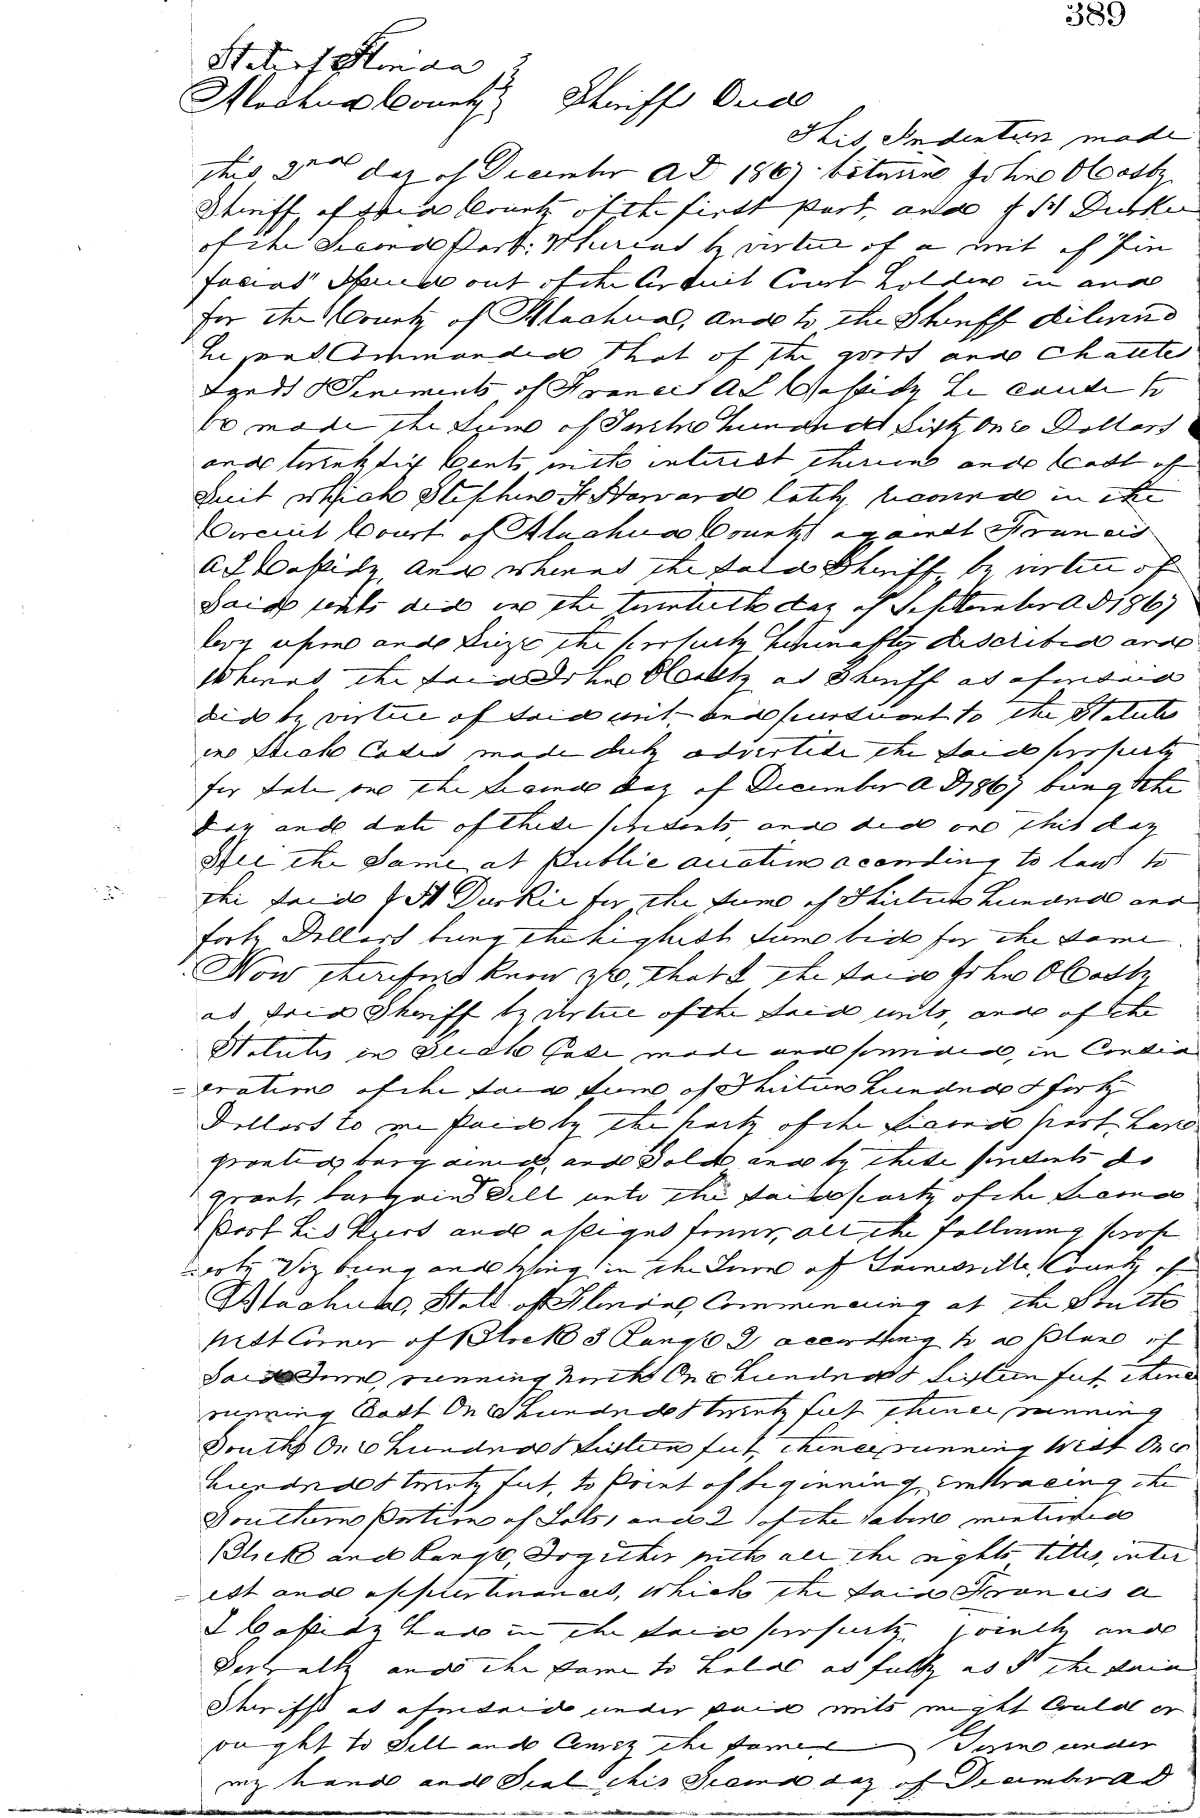 389
State of Florida }
Alachua County } Sheriffs Deed
This Indenture made
this 2nd day of December A D 1867 between John O Casby
Sheriff of said County of the first part, and J H Durkee
of the Second Part: Whereas by virtue of a writ of "Firi
facias" Issued out of the Circuit Court holden in and
for the County of Alachua, and to the Sheriff delivered
he was Commanded that of the goods and chattels
Lands & Tenements of Francis A L Cassidy he cause to
be made the Sum of Twelve hundred Sixty One Dollars
and twenty Six Cents with interest thereon and Cost of
Suit which Stephen H Harvard lately recovered in the
Circuit Court of Alachua County against Francis
A L Cassidy, And whereas the said Sheriff, by virtue of
Said writs did on the twentieth day of September A D 1867
levy upon and Seize the property hereinafter described and
Whereas the said John O Casby as Sheriff as aforesaid
did by virtue of said writ and pursuant to the Statute
in Such Cases made duly advertise the said property
for Sale on the Second day of December A D 1867 being the
day and date of these presents, and did on this day
Sell the Same at Public auction according to law to
the said J H Durkee for the sum of Thirteen hundred and
forty Dollars being the highest sum bid for the same.
Now therefore Know ye, that I the said John O Casby
as said Sheriff by virtue of the said writs, and of the
Statutes in Such Case made and provided, in Consid
=eration of the said sum of Thirteen hundred & forty
Dollars to me Paid by the party of the Second part, have
granted, bargained, and Sold, and by these presents do
grant, bargain & Sell unto the said party of the Second
Part his heirs and assigns forever, all the following prop
=erty Viz being and lying in the Town of Gainesville, County of
Alachua, State of Florida, Commencing at the South
West Corner of Block 3 Range 2 according to a Plan of
Said Town, running North One hundred & Sixteen feet, thence
running East One hundred & twenty feet thence running
South One hundred & Sixteen feet, thence running West One
hundred & twenty feet, to Point of beginning, embracing the
Southern Portion of Lots 1 and 2 of the above mentioned
Block and Range, Together with all the rights, titles, inter
=est and appurtinances, which the said Francis A
L Cassidy had in the said property, jointly and
Severally and the same to hold as fully as I the said
Sheriff as aforesaid under said writs might Could or
ought to Sell and Convey the same Given under
my hand and Seal this Second day of December A D